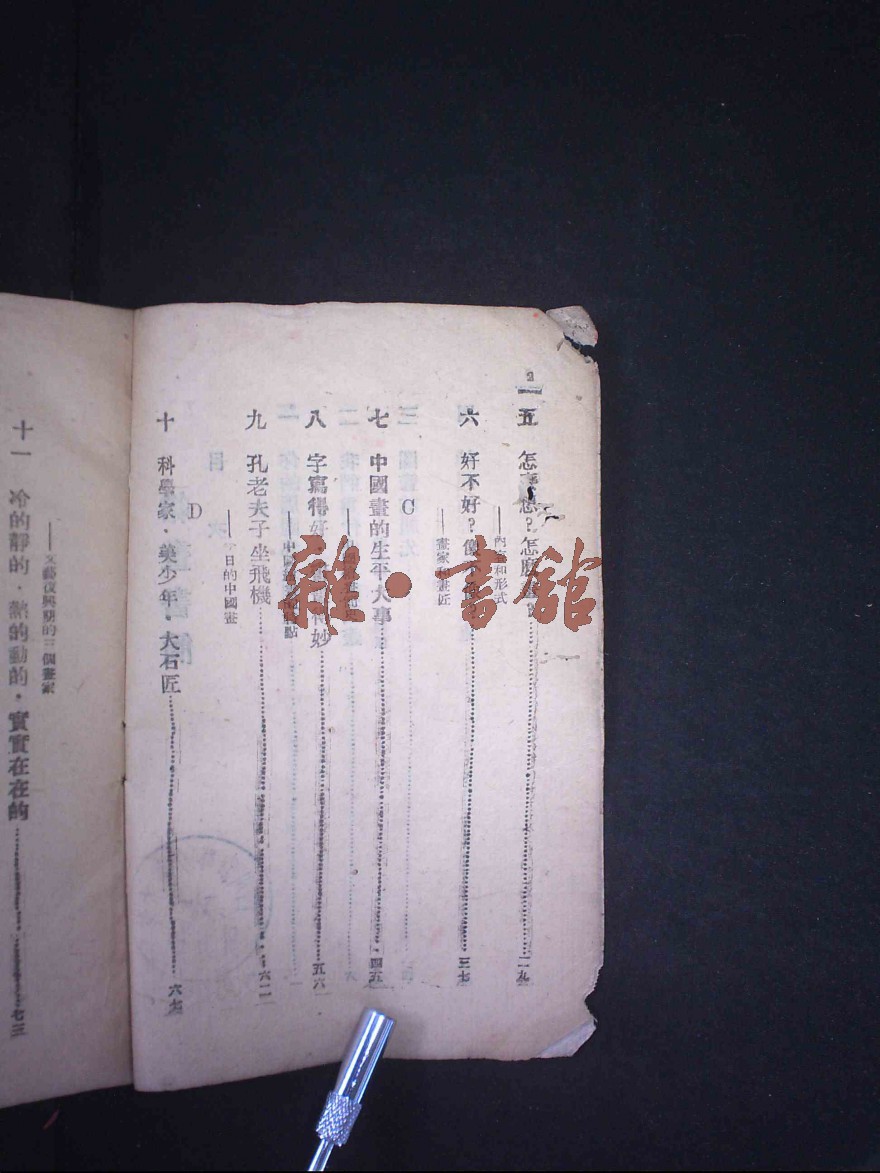 2
五 怎 ？怎 二九
——內 和形式
六 好不好？像不 三七
——畫家 畫匠
C
七 中國畫的生平大事 四五
八 字寫得好 妙 五六
——中國 點
九 孔老夫子坐飛機 六一
——今日的中國畫
D
十 科學家·美少年·大石匠 六七
——文藝復興期的三個畫家
十一 冷的靜的·熱的動的·實實在在的 七三
雜·書館